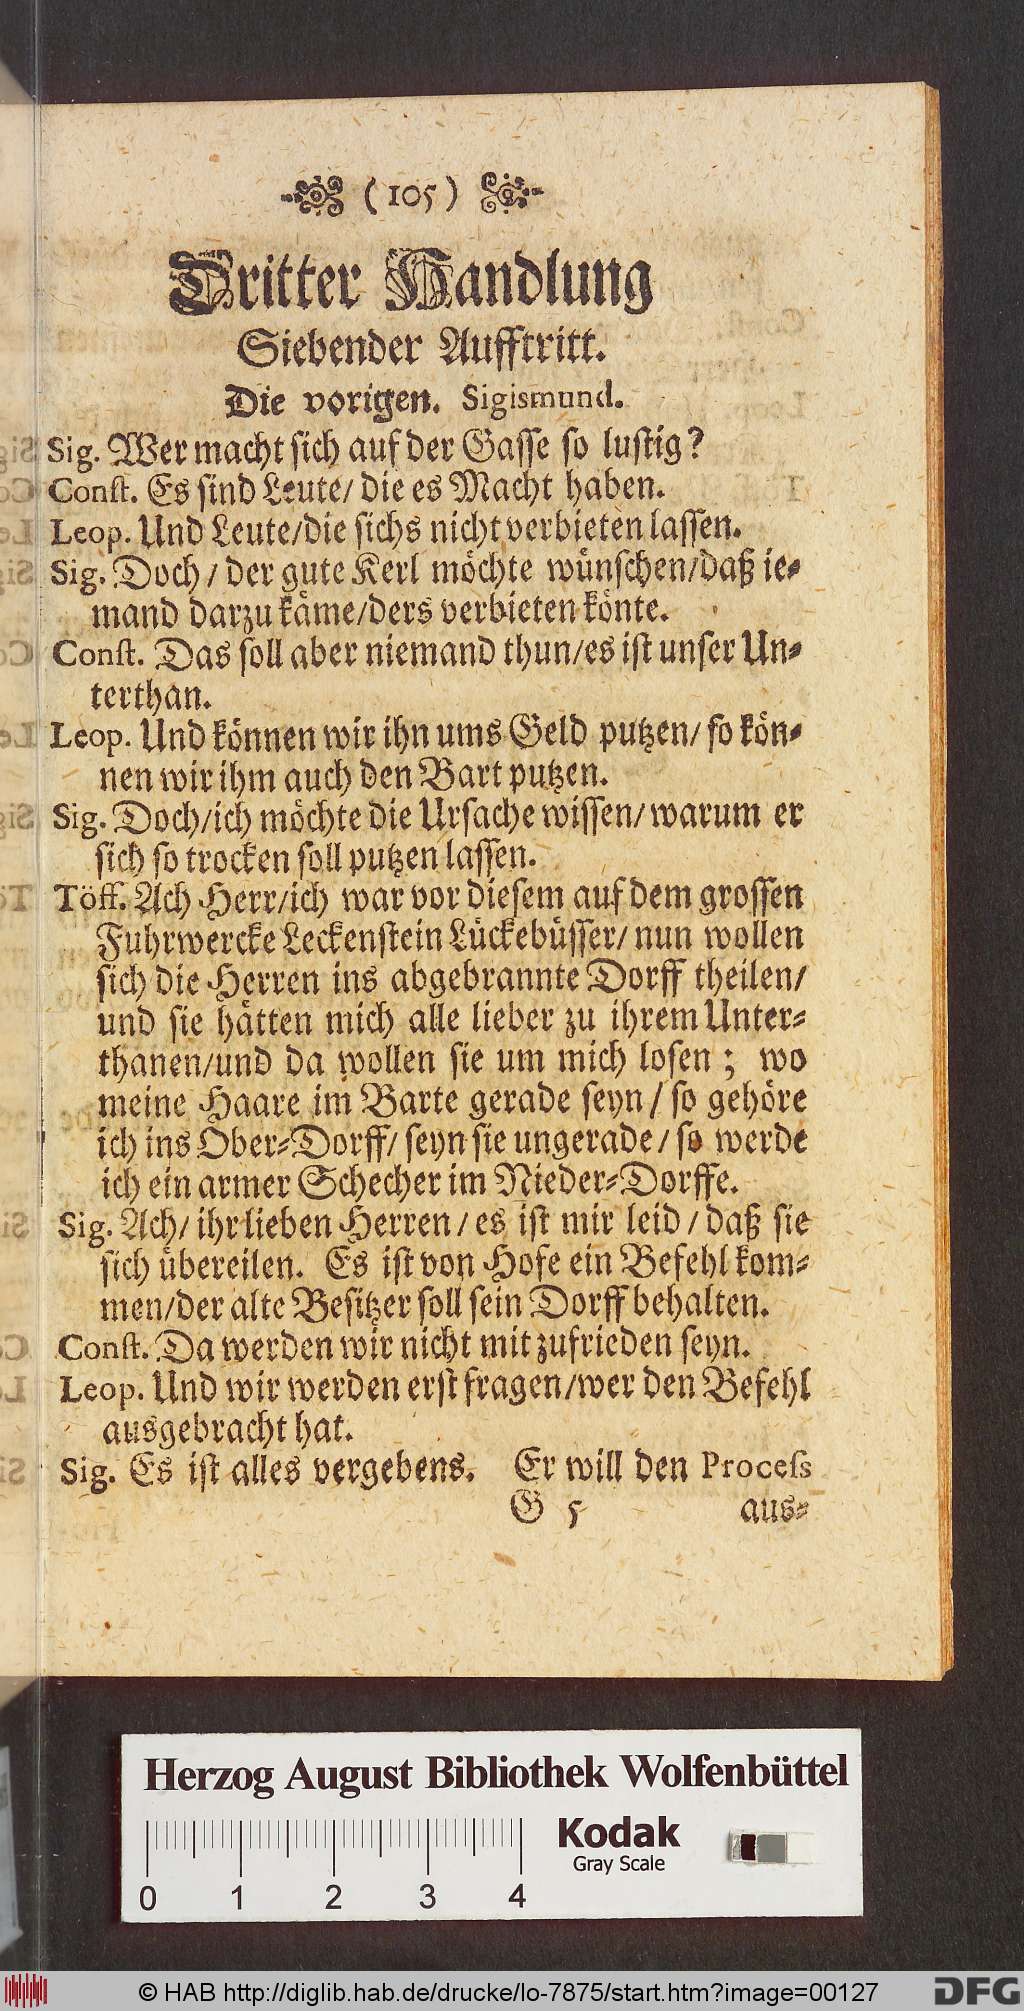 (105)
Dritter Handlung
Siebender Aufftritt.
Die vorigen. Sigismund.
Sig. Wer macht sich auf der Gasse so lustig?
Const. Es sind Leute/ die es Macht haben.
Leop. Und Leute/die sichs nicht verbieten lassen.
Sig. Doch/ der gute Kerl möchte wünschen/daß ie-
mand darzu käme/ders verbieten könte.
Const. Das soll aber niemand thun/es ist unser Un-
terthan.
Leop. Und können wir ihn ums Geld putzen/ so kön-
nen wir ihm auch den Bart putzen.
Sig. Doch/ich möchte die Ursache wissen/ warum er
sich so trocken soll putzen lassen.
Töff. Ach Herr/ich war vor diesem auf dem grossen
Fuhrwercke Leckenstein Lückebüsser/ nun wollen
sich die Herren ins abgebrannte Dorff theilen/
und sie hätten mich alle lieber zu ihrem Unter-
thanen/und da wollen sie um mich losen; wo
meine Haare im Barte gerade seyn/ so gehöre
ich ins Ober-Dorff/ seyn sie ungerade/ so werde
ich ein armer Schecher im Nieder-Dorffe.
Sig. Ach/ ihr lieben Herren/ es ist mir leid/ daß sie
sich übereilen. Es ist von Hofe ein Befehl kom-
men/der alte Besitzer soll sein Dorff behalten.
Const. Da werden wir nicht mit zufrieden seyn.
Leop. Und wir werden erst fragen/wer den Befehl
ausgebracht hat.
Sig. Es ist alles vergebens. Er will den Process
G 5 aus-
Herzog August Bibliothek Wolfenbüttel
Kodak
Gray Scale
0 1 2 3 4
© HAB http://diglib.hab.de/drucke/lo-7875/start.htm?image=00127
DFG